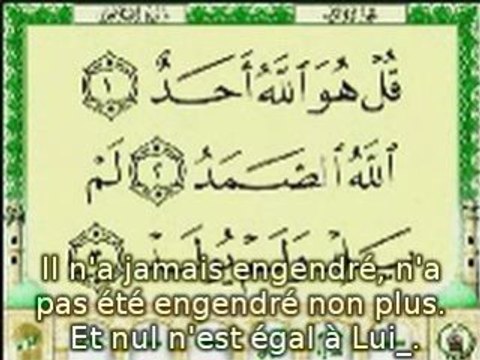 قُلْ هُوَ ٱللَّهُ أَحَدٌ ١
ٱللَّهُ ٱلصَّمَدُ ٢ لَمْ
يَلِدْ وَلَمْ يُولَدْ
Il n'a jamais engendré, n'a
pas été engendré non plus.
Et nul n'est égal à Lui_.